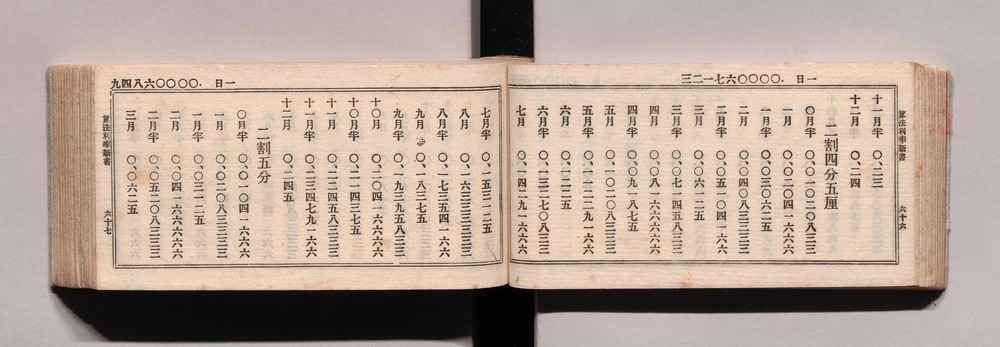 一日 .〇〇〇〇六七一二三
算法利率新書 六十六
十一月半 〇、二三
十二月 〇、二四
二割四分五厘
〇月半 〇、〇一〇二〇八三三
一月 〇、〇二〇四一六六六
一月半 〇、〇三〇六二五
二月 〇、〇四〇八三三三三
二月半 〇、〇五一〇四一六六
三月 〇、〇六一二五
三月半 〇、〇七一四五八三三
四月 〇、〇八一六六六六六
四月半 〇、〇九一八七五
五月 〇、一〇二〇八三三三
五月半 〇、一一二二九一六六
六月 〇、一二二五
六月半 〇、一三二七〇八三三
七月 〇、一四二九一六六六
一日 .〇〇〇〇六八四九
七月半 〇、一五三一二五
八月 〇、一六三三三三三三
八月半 〇、一七三五四一六六
九月 〇、一八三七五
九月半 〇、一九三九五八三三
十〇月 〇、二〇四一六六六六
十〇月半 〇、二一四三七五
十一月 〇、二二四五八三三三
十一月半 〇、二三四七九一六六
十二月 〇、二四五
二割五分
〇月半 〇、〇一〇四一六六六
一月 〇、〇二〇八三三三三
一月半 〇、〇三一二五
二月 〇、〇四一六六六六六
二月半 〇、〇五二〇八三三三
三月 〇、〇六二五
算法利率新書 六十七